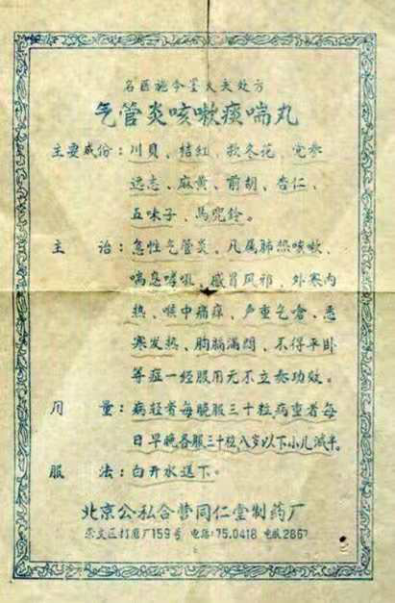 名医施今墨大夫处方
气管炎咳嗽痰喘丸
主要成份：川貝、桔红、款冬花、党参
远志、麻黄、前胡、杏仁、
五味子、馬兜铃。
主 治：急性气管炎、凡属肺燃咳嗽、
喘息哮吼、感冒风邪、外寒内
热、喉中痛痒、声重气喰、悪
寒发热、胸膈满闷、不得平卧
等症一经服用无不立奏功效。
用 量：病轻者每晚服三十粒病重者每
日早晚各服三十粒八岁以下小儿减半。
服 法：白开水送下。
北京公私合营同仁堂制药厂
崇文区打磨厂159号 电话：75.0418 电报2867